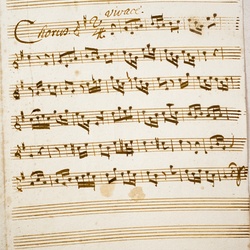 Vivace.
Chorus